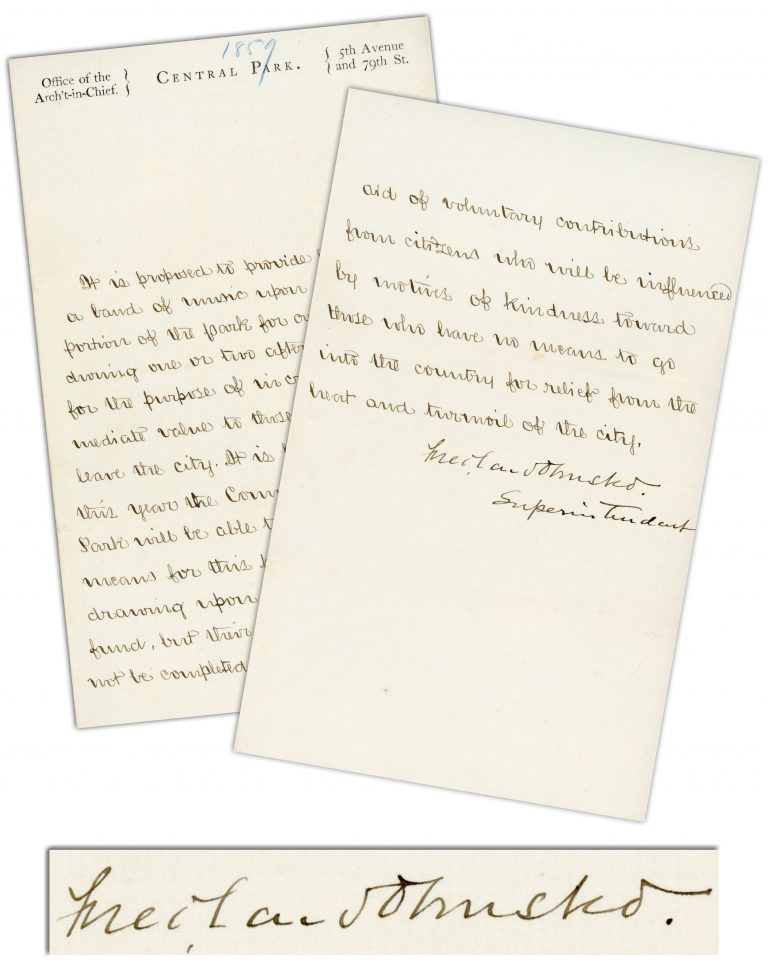 1859
Office of the
Arch't-in-Chief.
CENTRAL PARK.
5th Avenue
and 79th St.
It is proposed to provide
a band of music upon
portion of the park for
during one or two
for the purpose of
mediate value to those
leave the city. It is
this year the
Park will be able
means for this
drawing upon
fund, but their
not be completed
aid of voluntary contributions
from citizens who will be influenced
by motives of kindness toward
those who have no means to go
into the country for relief from the
heat and turmoil of the city.
Fred. Law Olmsted.
Superintendent
Fred. Law Olmsted.